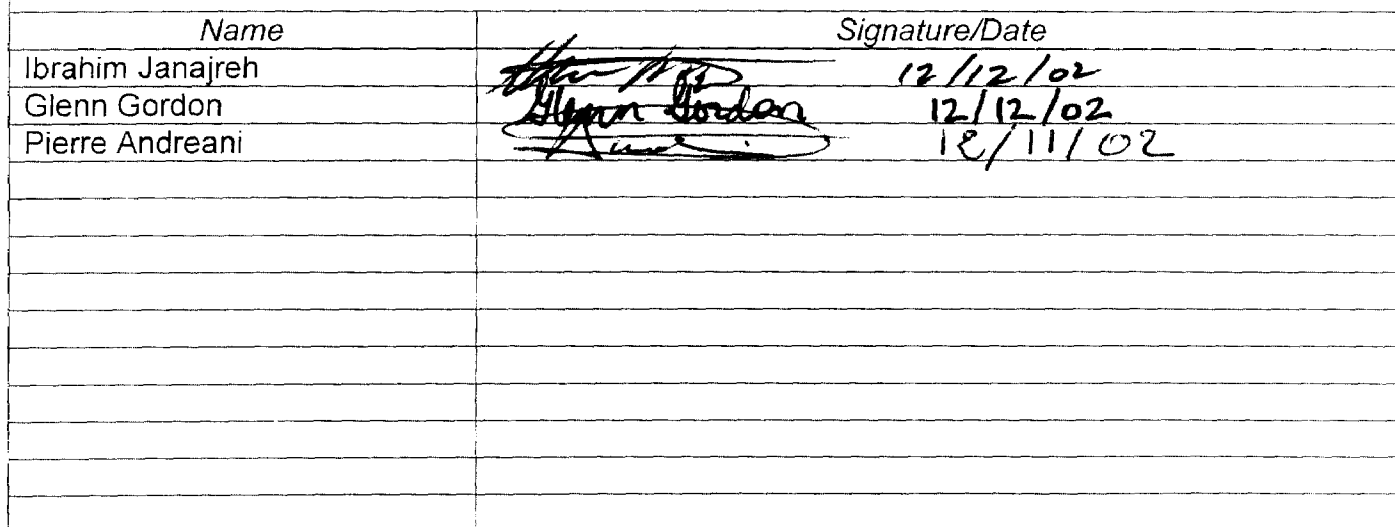 Name Signature/Date
Ibrahim Janajreh 12/12/02
Glenn Gordon Glenn Gordon 12/12/02
Pierre Andreani 12/11/02